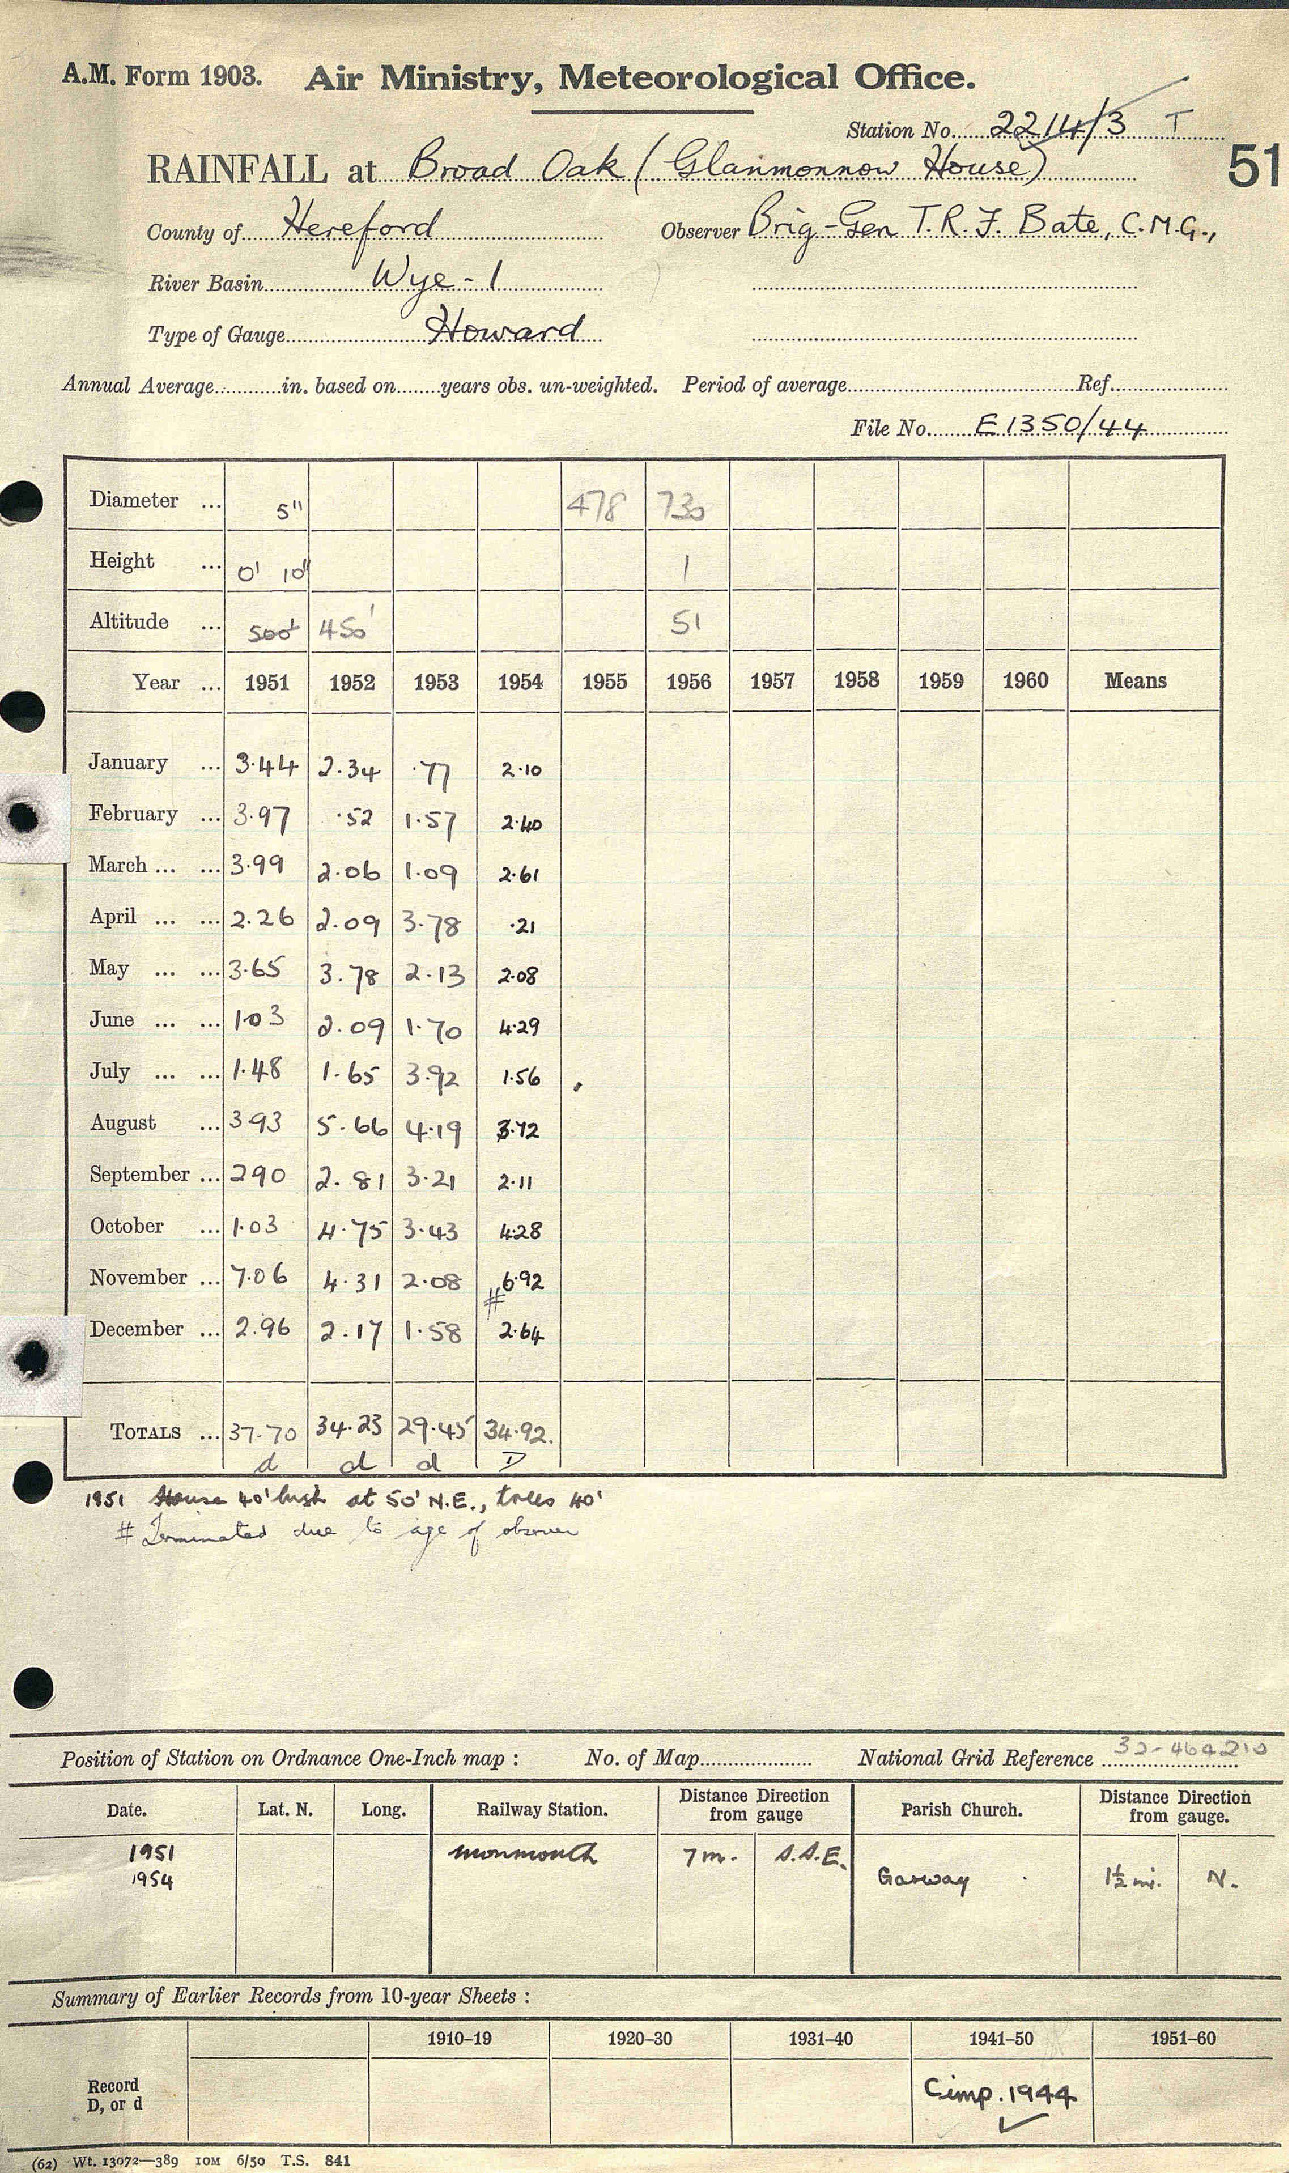 A.M. Form 1903. Air Ministry, Meteorological Office.
Station No. 2214/3 T
RAINFALL at Broad Oak (Glanmonnow House) 51
County of Hereford Observer Brig-Gen T.R.F. Bate, C.M.G.,
River Basin Wye - 1
Type of Gauge Howard
Annual Average in. based on years obs. un-weighted. Period of average Ref
File No. E1350/44
Diameter ... 5" 478 730
Height ... 0' 10" 1
Altitude ... 500' 450' 51
Year ... 1951 1952 1953 1954 1955 1956 1957 1958 1959 1960 Means
January ... 3.44 2.34 .77 2.10
February ... 3.97 .52 1.57 2.40
March ... ... 3.99 2.06 1.09 2.61
April ... ... 2.26 2.09 3.78 .21
May ... ... 3.65 3.78 2.13 2.08
June ... ... 1.03 2.09 1.70 4.29
July ... ... 1.48 1.65 3.92 1.56
August ... 3.93 5.66 4.19 3.72
September ... 290 2.81 3.21 2.11
October ... 1.03 4.75 3.43 4.28
November ... 7.06 4.31 2.08 6.92
#
December ... 2.96 2.17 1.58 2.64
TOTALS ... 37.70 34.23 29.45 34.92.
d d d D
1951 House 40' high at 50' N.E., trees 40'
# Terminated due to age of observer
Position of Station on Ordnance One-Inch map : No. of Map National Grid Reference 32-464210
Date. Lat. N. Long. Railway Station. Distance Direction from gauge Parish Church. Distance Direction from gauge.
1951 Monmouth 7m. S.S.E.
1954 Garway 1½ mi. N.
Summary of Earlier Records from 10-year Sheets :
1910–19 1920–30 1931–40 1941–50 1951–60
Record D, or d Cimp. 1944 ✓
(62) Wt. 13072—389 10M 6/50 T.S. 841